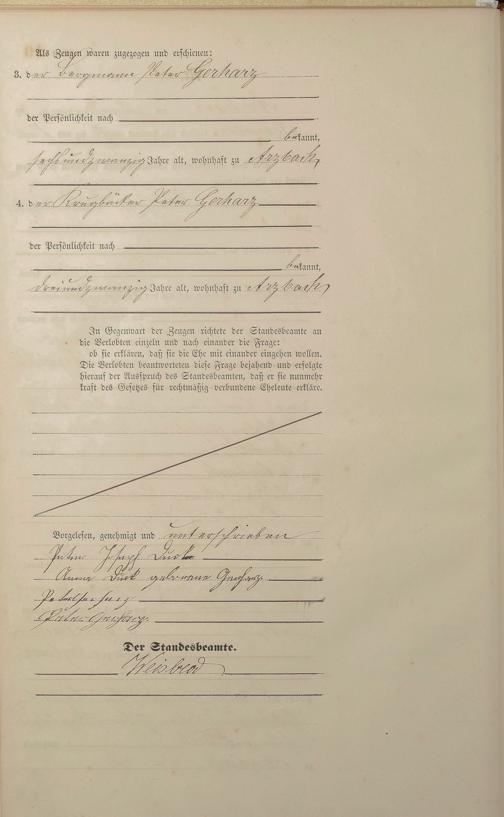 Als Zeugen waren zugezogen und erschienen:
3. der Bergmann Peter Gerharz
der Persönlichkeit nach
bekannt,
sechsundzwanzig Jahre alt, wohnhaft zu Arzbach,
4. der Krugbäcker Peter Gerharz
der Persönlichkeit nach
bekannt,
dreiundzwanzig Jahre alt, wohnhaft zu Arzbach,
In Gegenwart der Zeugen richtete der Standesbeamte an
die Verlobten einzeln und nach einander die Frage:
ob sie erklären, daß sie die Ehe mit einander eingehen wollen.
Die Verlobten beantworteten diese Frage bejahend und erfolgte
hierauf der Ausspruch des Standesbeamten, daß er sie nunmehr
kraft des Gesetzes für rechtmäßig verbundene Eheleute erkläre.
Vorgelesen, genehmigt und unterschrieben
Peter Joseph
Anna geborene Gerharz
Peter Gerharz
Peter Gerharz
Der Standesbeamte.
Weisbrod